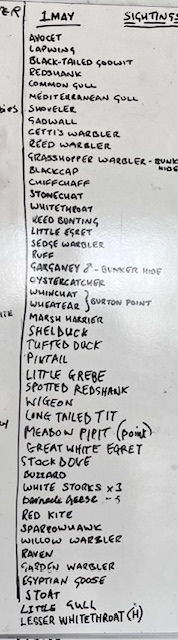 1 MAY SIGHTINGS
AVOCET
LAPWING
BLACK-TAILED GODWIT
REDSHANK
COMMON GULL
MEDITERRANEAN GULL
SHOVELER
GADWALL
CETTI'S WARBLER
REED WARBLER
GRASSHOPPER WARBLER - BUNK
HIDE
BLACKCAP
CHIFFCHAFF
STONECHAT
WHITETHROAT
REED BUNTING
LITTLE EGRET
SEDGE WARBLER
RUFF
GARGANEY ♂ - BUNKER HIDE
OYSTERCATCHER
WHINCHAT
WHEATEAR } BURTON POINT
MARSH HARRIER
SHELDUCK
TUFTED DUCK
PINTAIL
LITTLE GREBE
SPOTTED REDSHANK
WIGEON
LONG TAILED TIT
MEADOW PIPIT (point)
GREAT WHITE EGRET
STOCK DOVE
BUZZARD
WHITE STORKS x 3
barnacle geese - 5
RED KITE
SPARROWHAWK
WILLOW WARBLER
RAVEN
GARDEN WARBLER
EGYPTIAN GOOSE
STOAT
LITTLE GULL
LESSER WHITETHROAT (H)